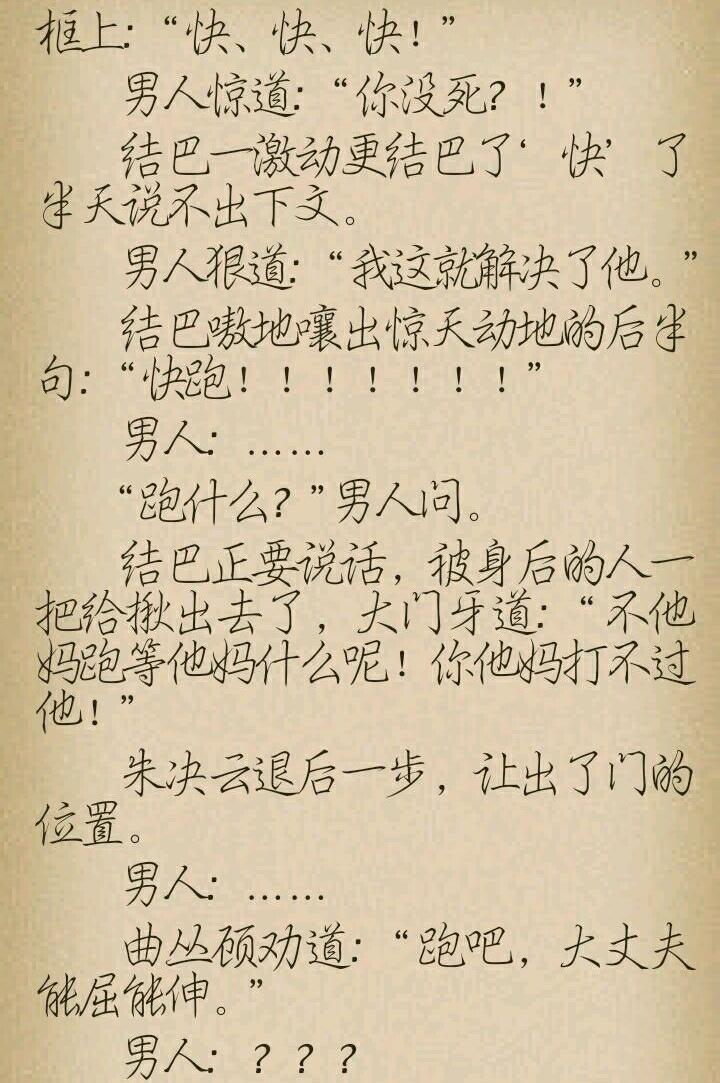 框上:“快、快、快!”
男人惊道:“你没死?!”
结巴一激动更结巴了‘快’了
半天说不出下文。
男人狠道:“我这就解决了他。”
结巴嗷地嚷出惊天动地的后半
句:“快跑!!!!!!!”
男人:……
“跑什么?”男人问。
结巴正要说话,被身后的人一
把给揪出去了,大门牙道:“不他
妈跑等他妈什么呢!你他妈打不过
他!”
朱决云退后一步,让出了门的
位置。
男人:……
曲丛顾劝道:“跑吧,大丈夫
能屈能伸。”
男人:???